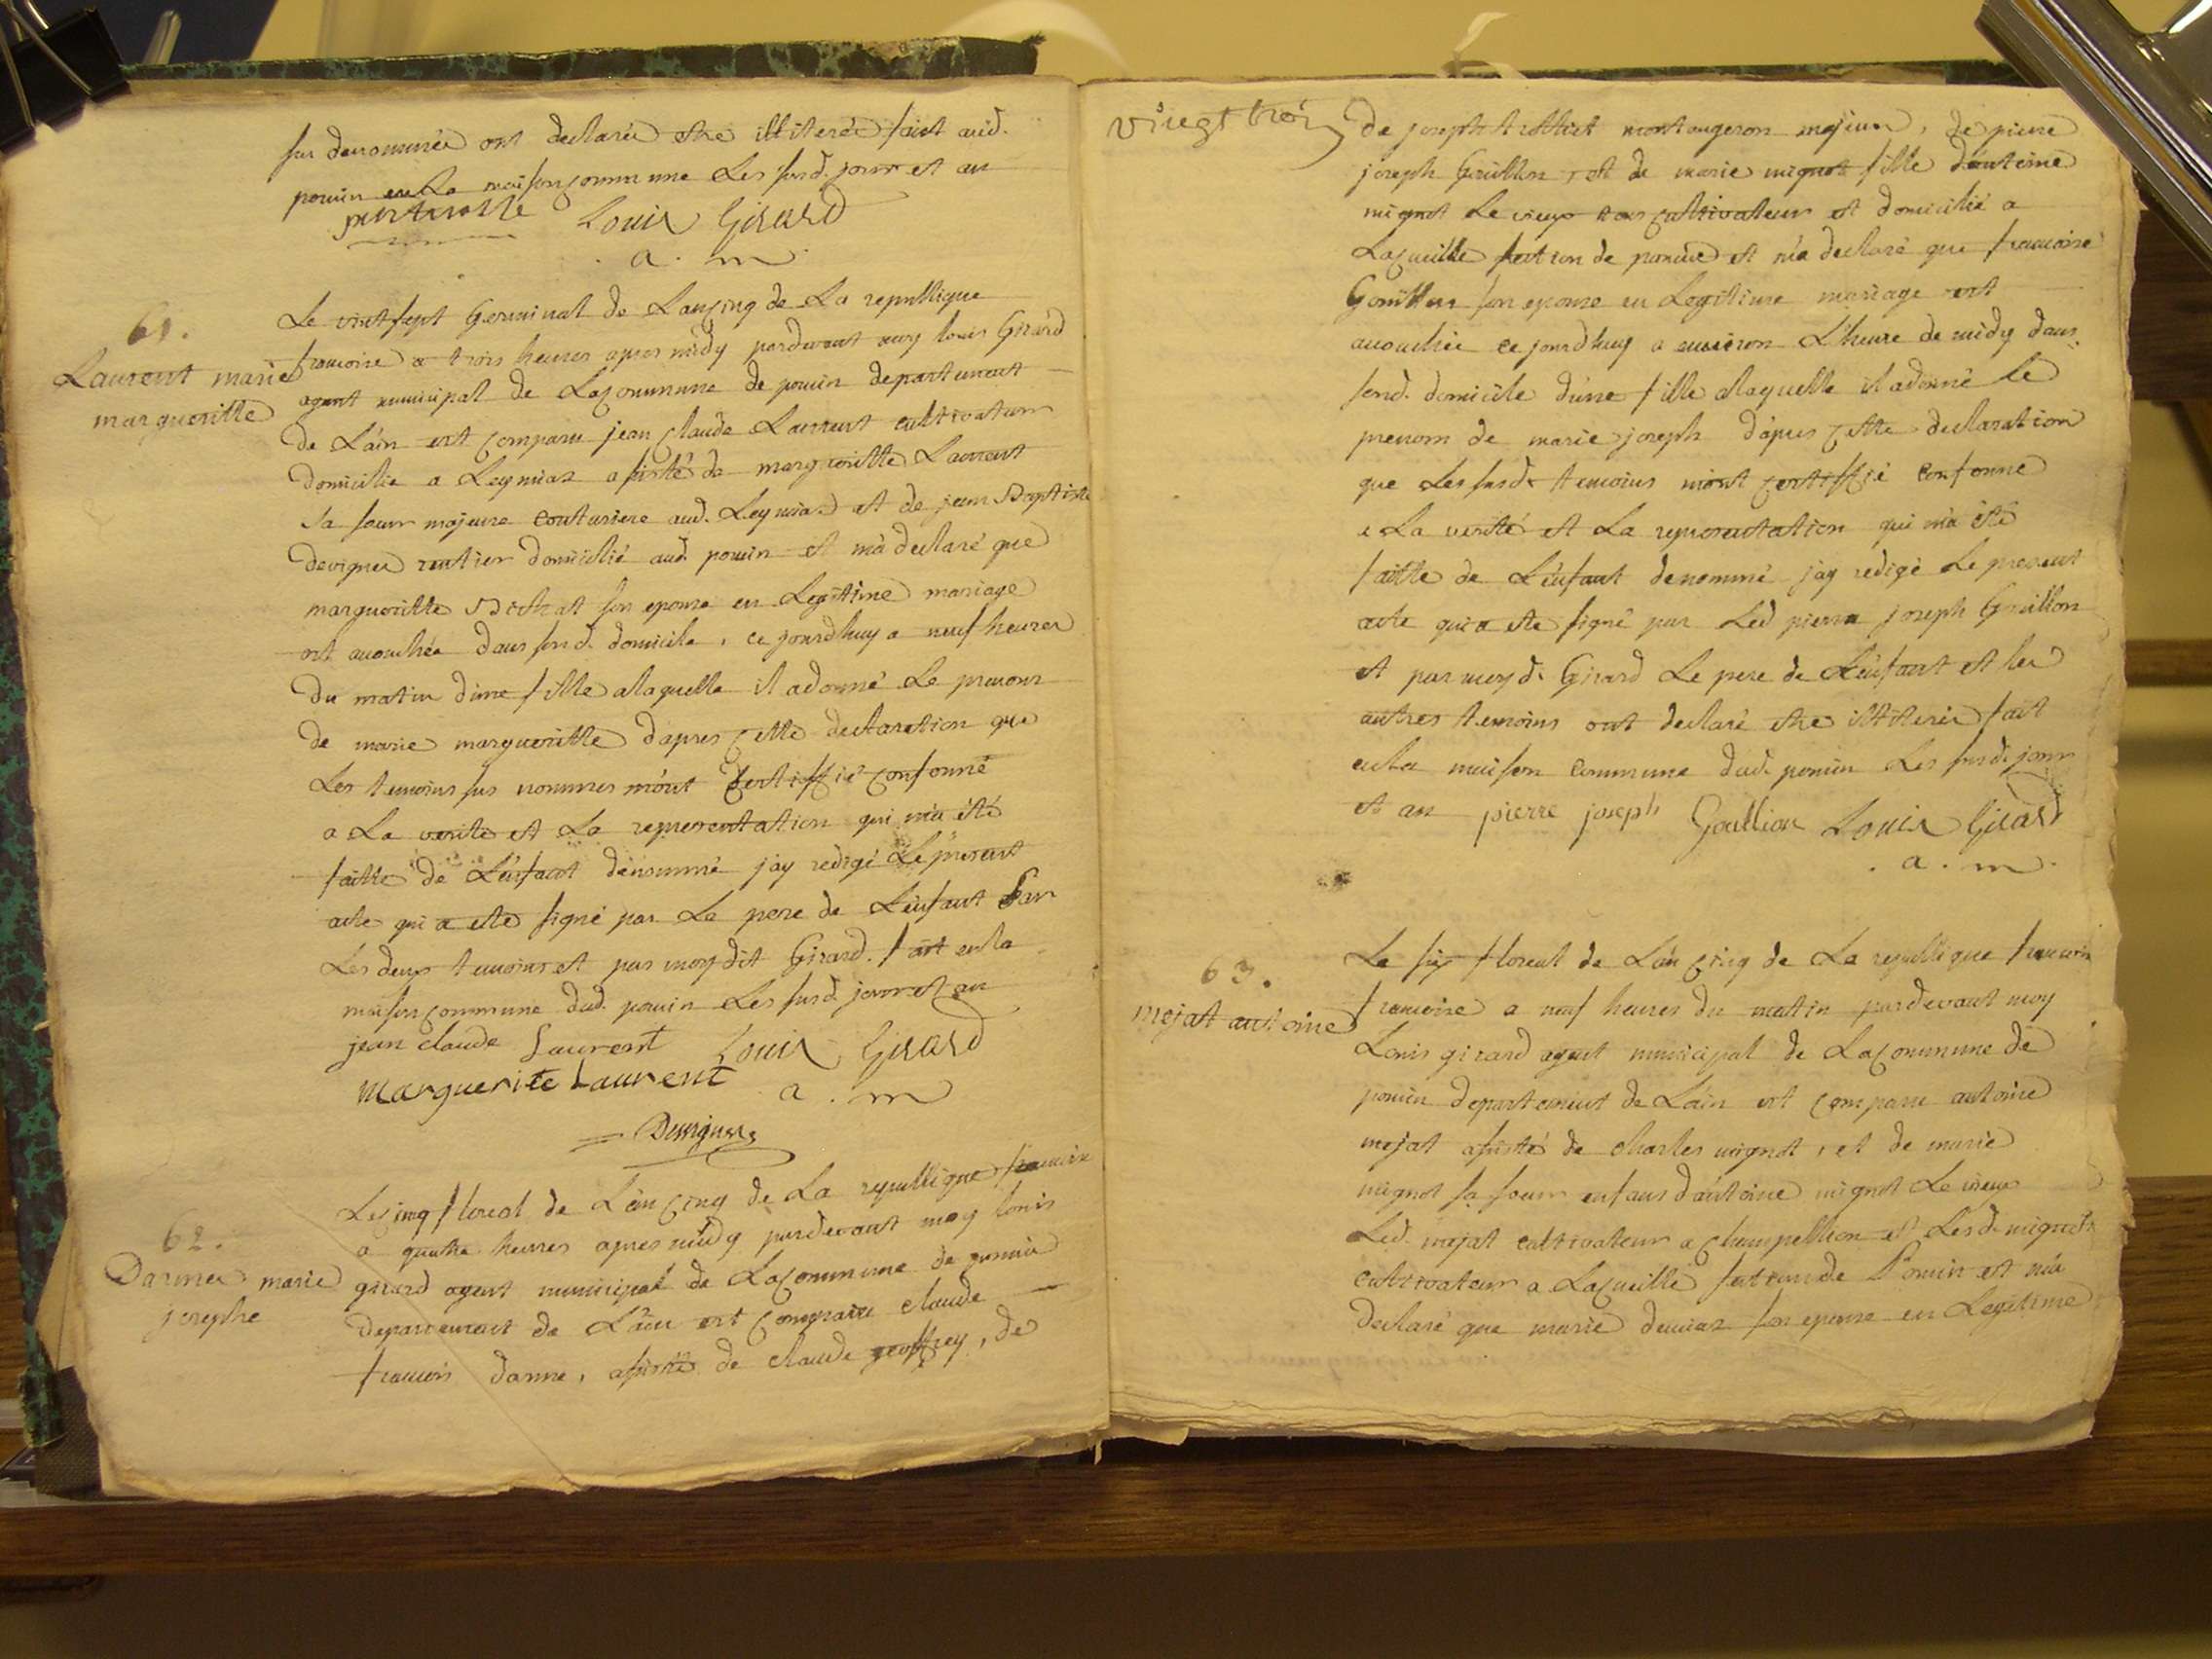 sus denommés ont declarés etre illiterés faict aud.
poncin en la maison commune les susd. jour et an
Louis Girard
a. m
61.
Laurent marie
margueritte
Le vint sept Germinal de Lan cinq de La republique
francoise a trois heures apres midy pardevant moy louis Girard
agent municipal de La commune de poncin departement
de L'ain est comparu jean claude Laurent cultivateur
domicilié a Leymiaz assisté de margueritte Laurent
sa soeur majeure couturiere aud. Leymiaz et de jean Baptiste
devignes rentier domicilié aud. poncin et m'a declaré que
margueritte Bichat son epouse en Legitime mariage
est accouchée dans sond. domicile, ce jourdhuy a neuf heures
du matin d'une fille a laquelle il a donné Le prenom
de marie margueritte d'apres cette declaration que
Les temoins sus nommes m'ont certiffié conforme
a La verité et La representation qui m'a été
faitte de L'enfant denommé j'ay redigé Le present
acte qui a eté signé par Le pere de L'enfant Par
Les deux temoins et par moy dit Girard. fait en la
maison commune dud. poncin Les susd. jour et an
jean claude Laurent Louis Girard
Marguerite Laurent a. m
Devignes
62.
Darmes marie
josephe
Le cinq floreal de L'an cinq de La republique francoise
a quatre heures apres midy pardevant moy louis
girard agent municipal de La commune de poncin
departement de L'ain est comparu claude
francois darme, assisté de claude geoffrey, de
vingt trois
de joseph trottiet montangeron majeurs, de pierre
joseph Goüillon, et de marie mignot fille d'antoine
mignot Le vieux tous cultivateurs et domicilié a
La cueille section de poncin et m'a declaré que francoise
Goüillon son epouse en Legitime mariage est
accouchée ce jourdhuy a environ L'heure de midy dans
sond. domicile d'une fille a laquelle il a donné le
prenom de marie joseph d'apres cette declaration
que Les susd. temoins m'ont certiffié conforme
a La verité et La representation qui m'a été
faitte de L'enfant denommé j'ay redigé Le present
acte qui a eté signé par Led pierre joseph Goüillon
et par moy d. Girard Le pere de L'enfant et les
autres temoins ont declaré etre illiterés fait
en la maison commune dud. poncin Les susd. jour
et an pierre joseph Goullion Louis Girard
a. m.
63.
mejat antoine
Le six floreal de L'an cinq de La republique francoise
francoise a neuf heures du matin pardevant moy
Louis girard agent municipal de La commune de
poncin departement de L'ain est comparu antoine
mejat assisté de charles mignot, et de marie
mignot sa soeur enfans d'antoine mignot Le vieux
Led. mejat cultivateur a champellion et Lesd. mignots
cultivateur a La cueille section de Poncin et m'a
declaré que marie deniaz son epouse en Legitime